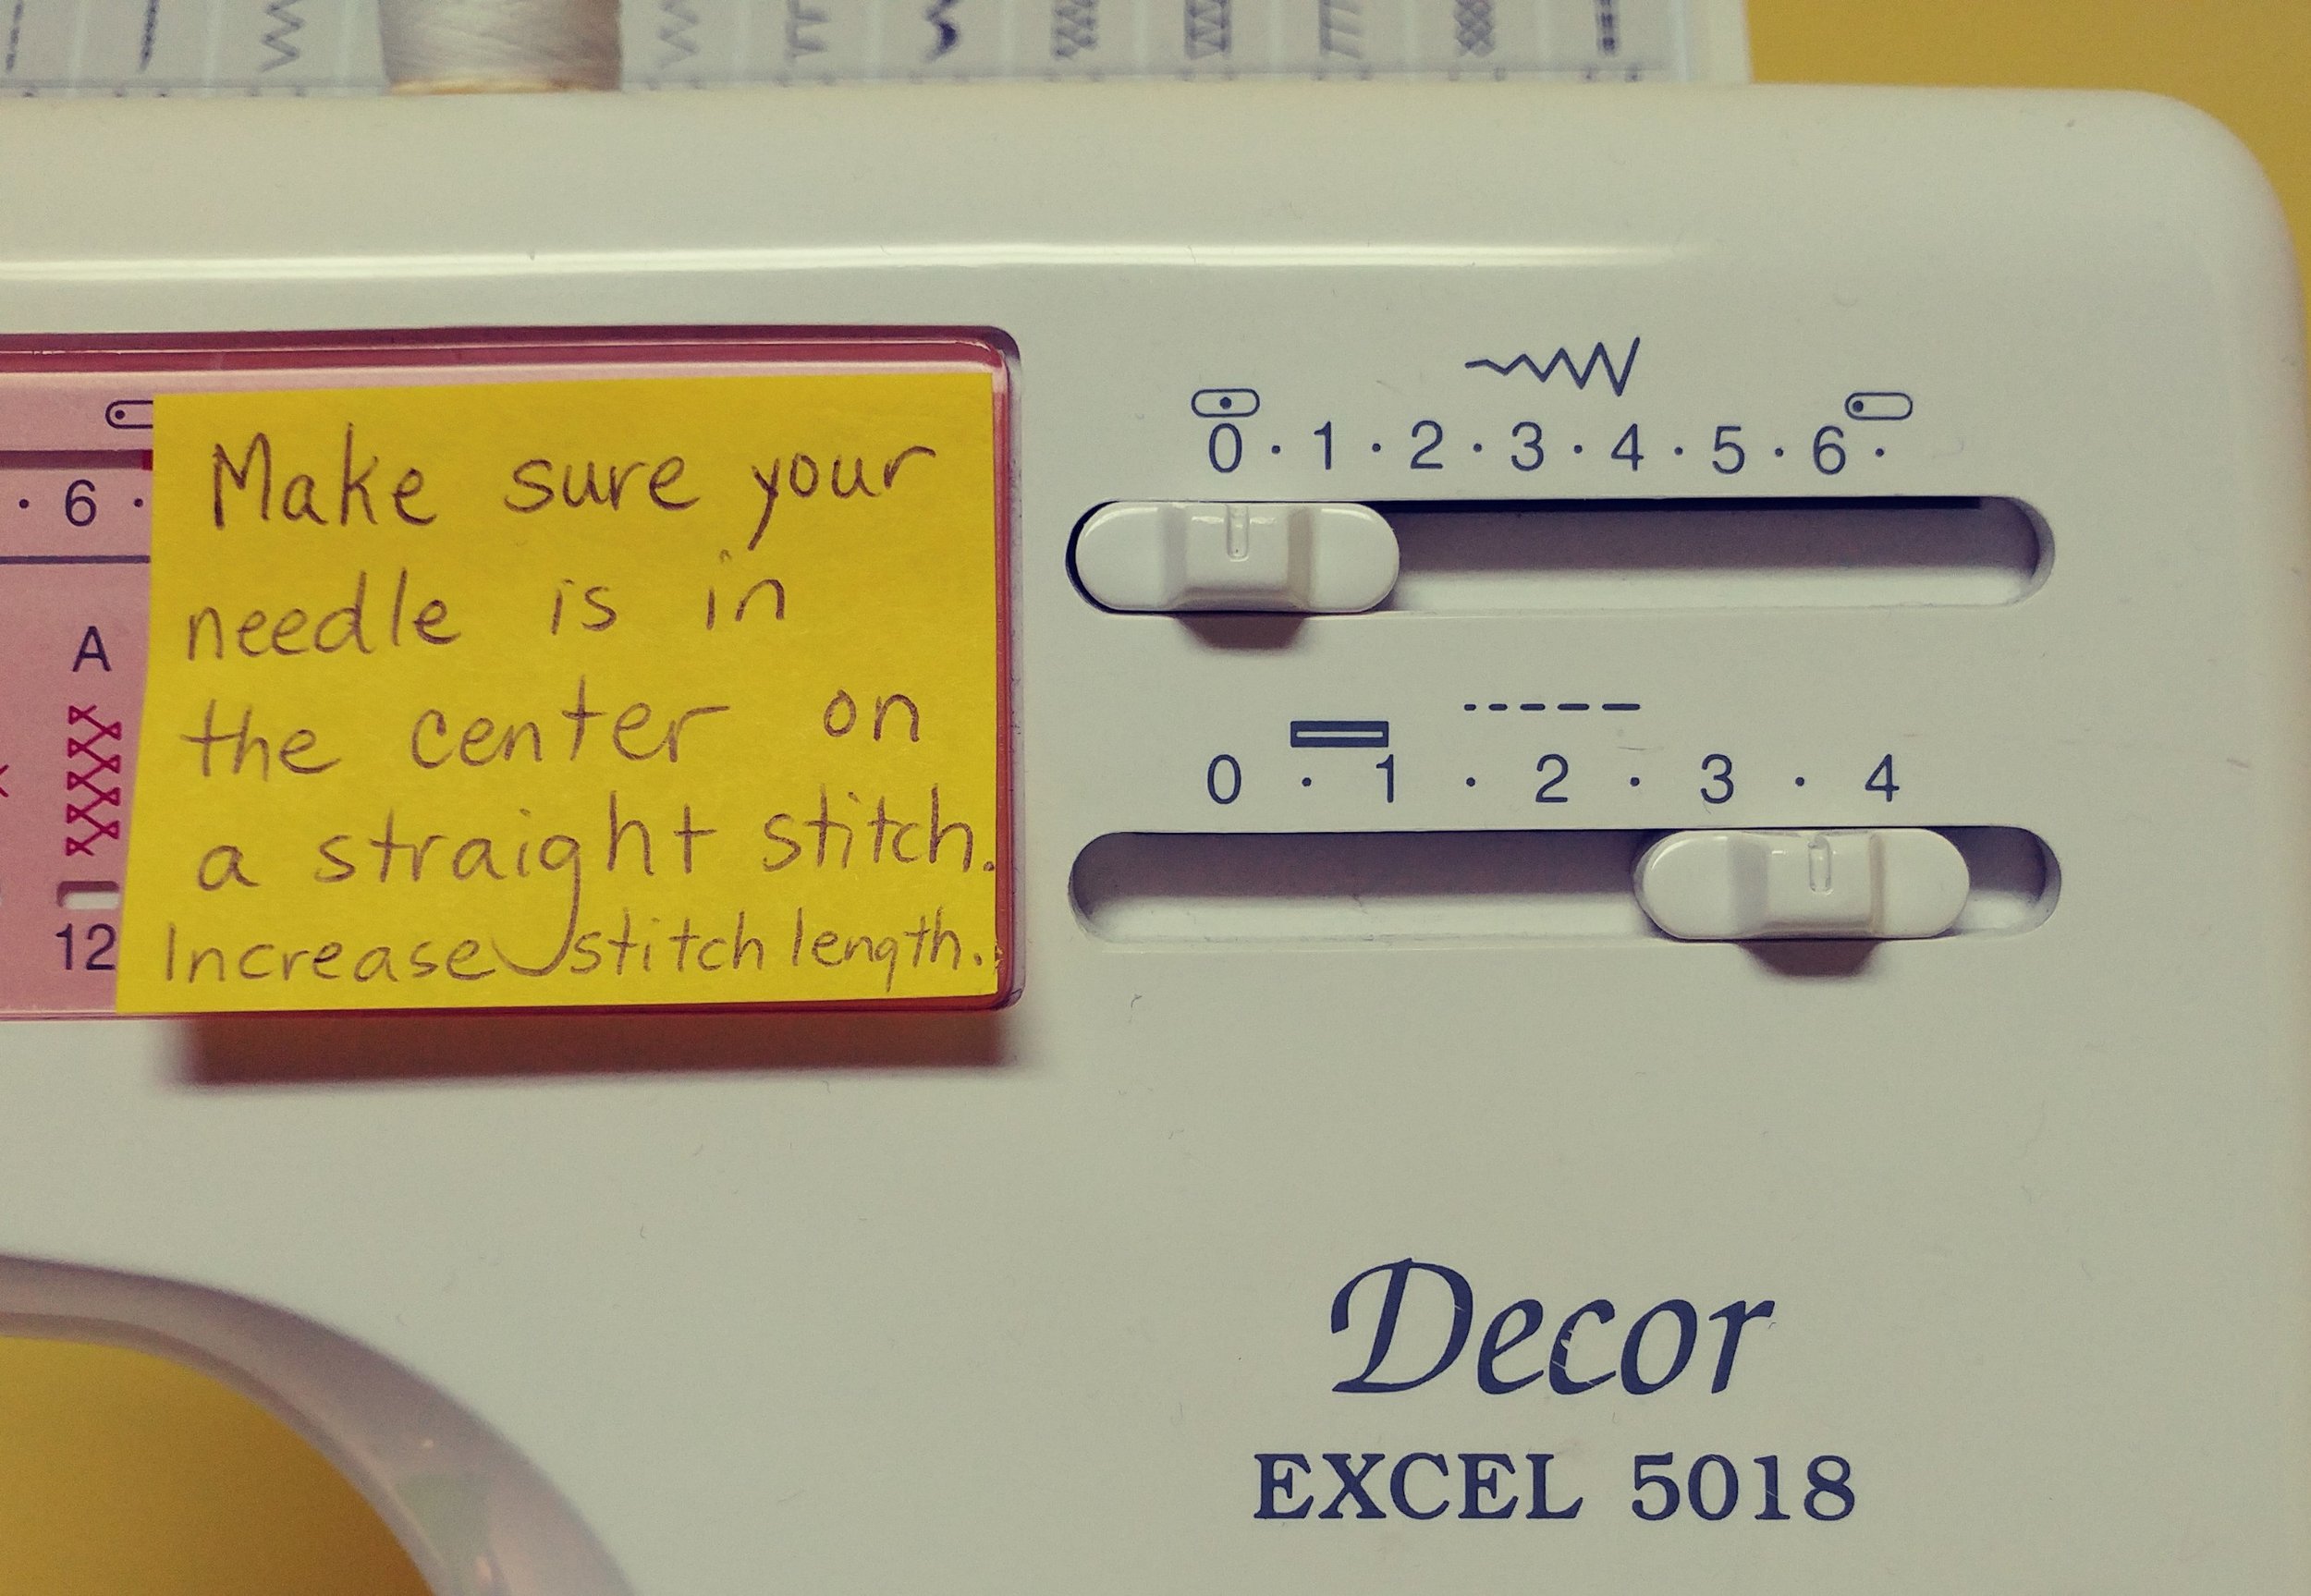 Make sure your
needle is in
the center on
a straight stitch.
Increase stitch length.
· 6 ·
A
12
0 · 1 · 2 · 3 · 4 · 5 · 6 ·
0 · 1 · 2 · 3 · 4
Decor
EXCEL 5018